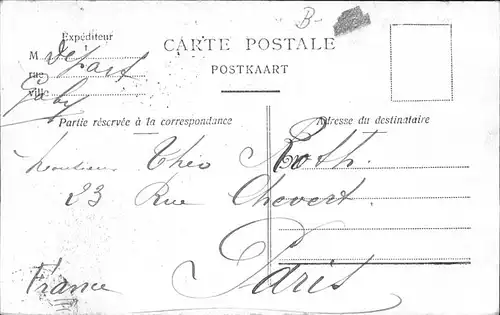 B-
Expéditeur
CARTE POSTALE
M Départ
POSTKAART
rue
ville Gaby
Partie réservée à la correspondance
Adresse du destinataire
Monsieur Théo Roth.
23 Rue Chevert.
Paris
France